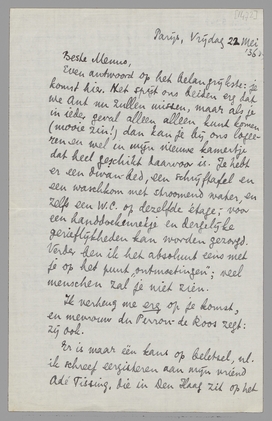 Parijs, Vrijdag 22 Mei
'36.
Beste Menno,
Even antwoord op het belangrijkste: je
komt hier. Het spijt ons beiden erg dat
we Ant nu zullen missen, maar als je
in ieder geval alleen alleen kunt komen
(mooie zin!) dan kan je bij ons logee-
ren en wel in mijn nieuwe kamertje
dat heel geschikt daarvoor is. Je hebt
er een divan-bed, een schrijftafel en
een waschkom met stroomend water, en
zelfs een W.C. op dezelfde étage; voor
een handdoekenrekje en dergelijke
geriefelijkheden kan worden gezorgd.
Verder ben ik het absoluut eens met
je op het punt "ontmoetingen"; veel
menschen zal je niet zien.
Ik verheug me erg op je komst,
en mevrouw du Perron-de Roos zegt:
zij ook.
Er is maar één kans op beletsel, nl.
ik schreef eergisteren aan mijn vriend
Adé Tissing, die in Den Haag zit op het